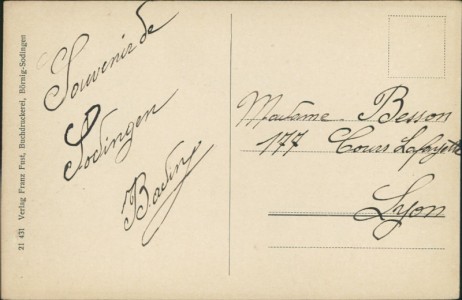 21 431 Verlag Franz Fust, Buchdruckerei, Börnig-Sodingen
Souvenir de
Sodingen
Madame Besson
177 Cours Lafayette
Lyon